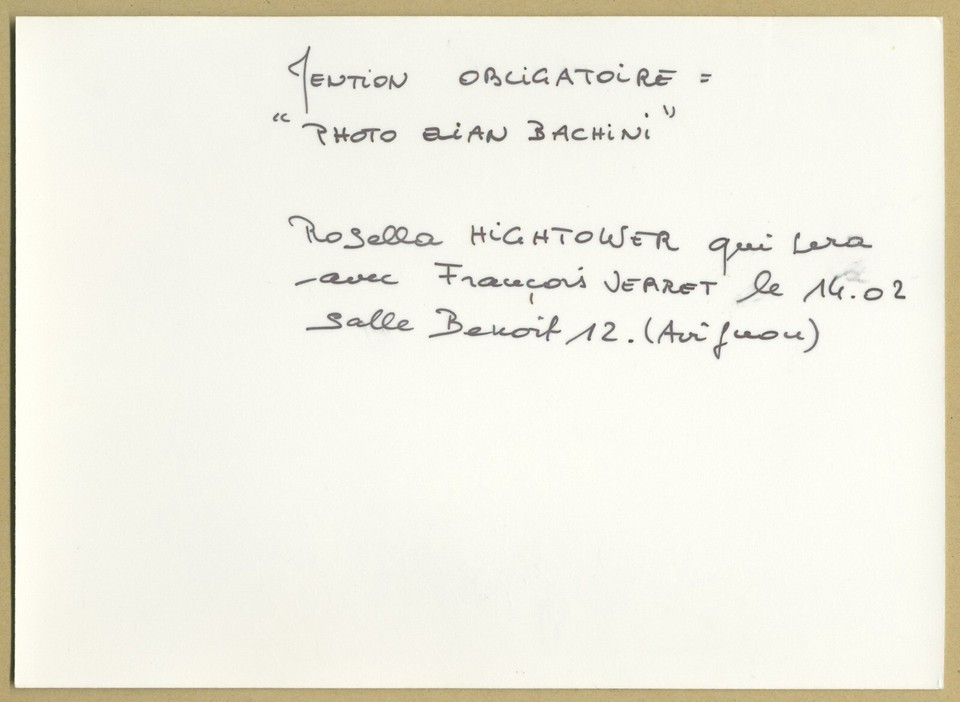 Mention OBLIGATOIRE =
"PHOTO ELIAN BACHINI"
Rosella HIGHTOWER qui sera
avec François VERRET le 14.02
salle Benoit 12. (Avignon)